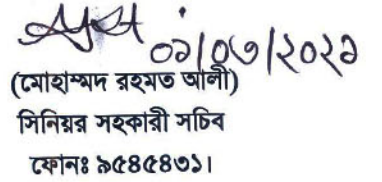 ০১/০৩/২০২১
(মোহাম্মদ রহমত আলী)
সিনিয়র সহকারী সচিব
ফোনঃ ৯৫৪৫৪৩১।